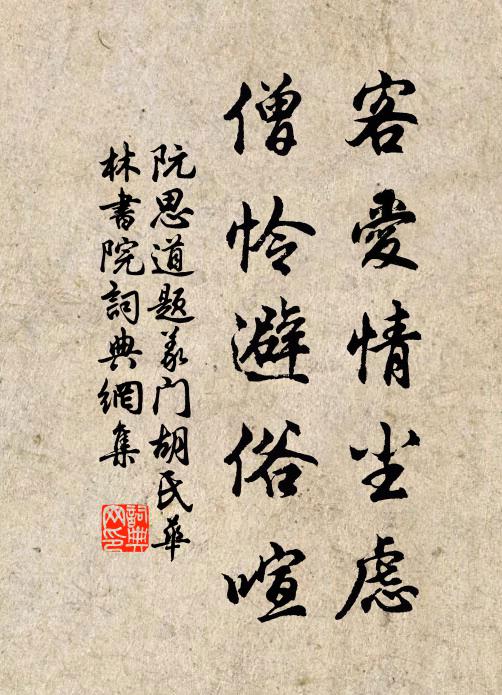 客愛情尘慮
僧怜避俗喧
阮思道題义门胡氏華
林書院詞典網集
詞典网印